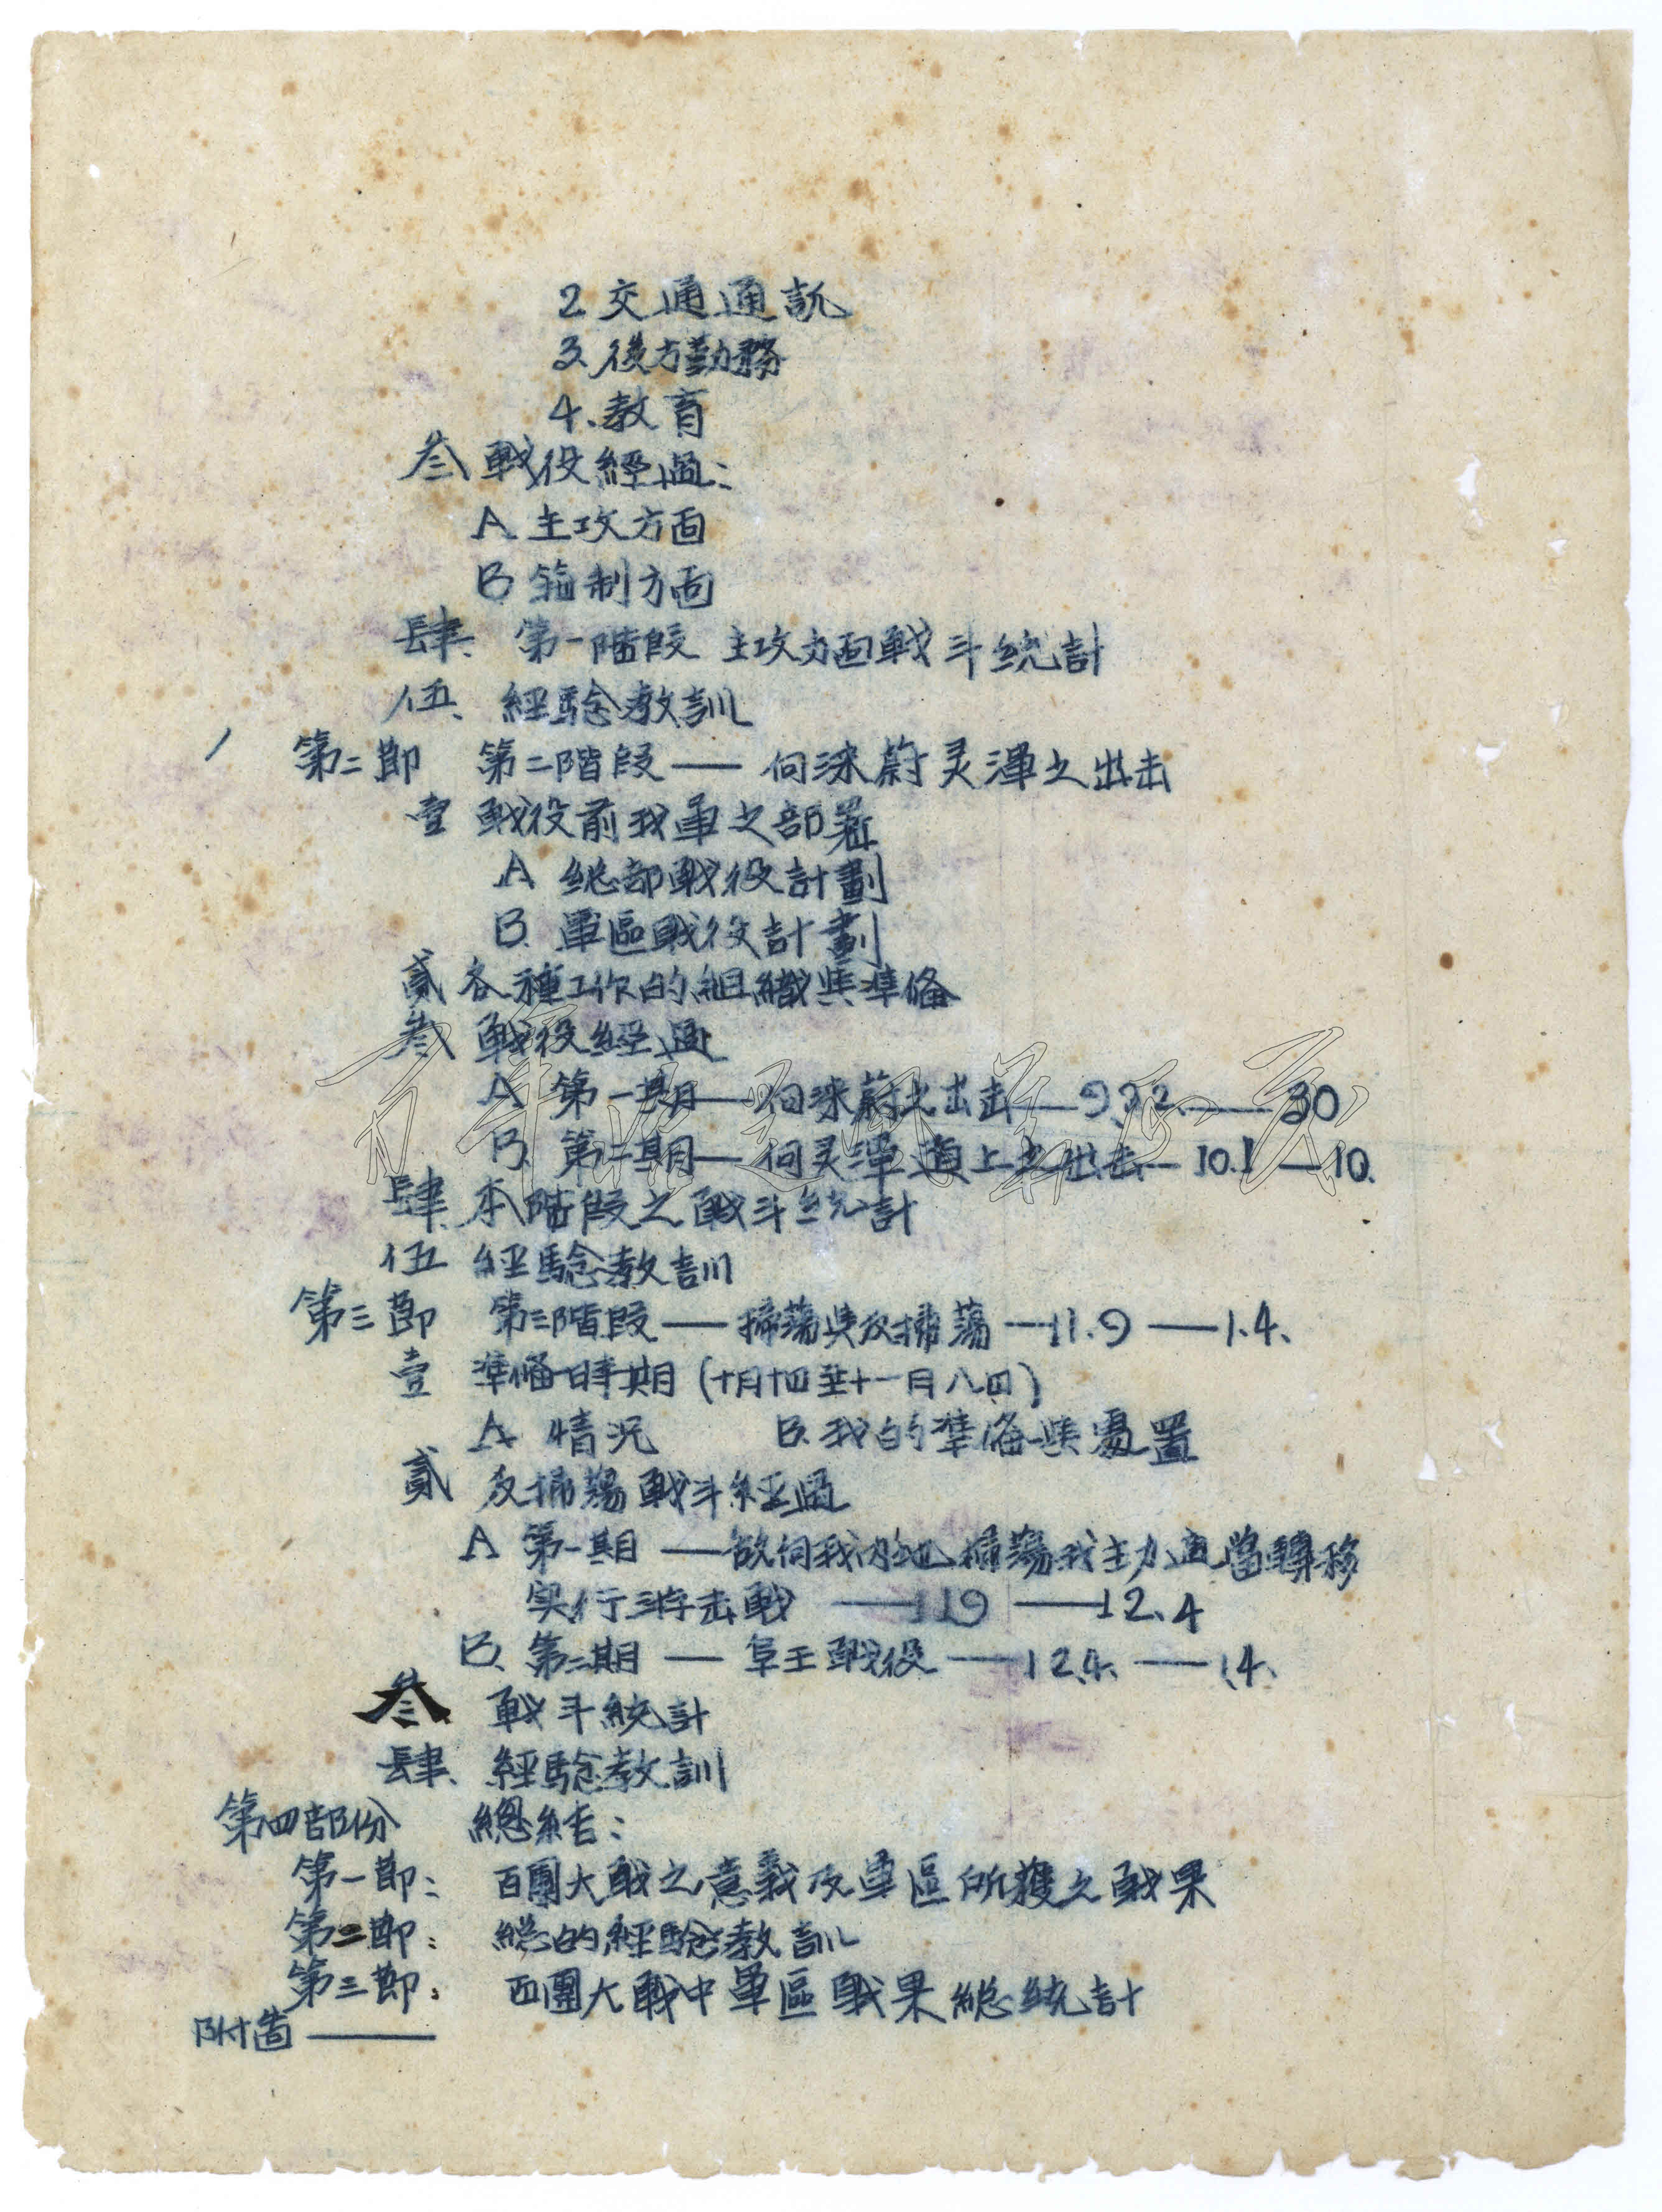 2. 交通通訊
3. 後方勤務
4. 教育
叁 戰役經過:
A 主攻方面
B 箝制方面
肆、 第一階段 主攻方面戰斗統計
伍、 經驗教訓
第二節 第二階段—— 向淶蔚灵渾之出击
壹 戰役前我軍之部署
A 総部戰役計劃
B. 軍區戰役計劃
貳 各種工作的組織與準俻
叁 戰役經過
A 第一期——向淶蔚之出击——9.22.——30
B. 第二期——向灵渾道上之出击—10.1—10.
肆 本階段之戰斗統計
伍 經驗教訓
第三節 第三階段——掃蕩與反掃蕩—11.9——1.4.
壹 準俻時期(十月十四至十一月八日)
A 情况 B.我的準俻與處置
貳 反掃蕩戰斗經過
A 第一期——敌向我内地掃蕩我主力適當轉移
实行游击戰——11.9——12.4
B. 第二期——阜王戰役——12.4.——1.4.
叁 戰斗統計
肆、 經驗教訓
第四部份 總結:
第一節: 百團大戰之意義及軍區所獲之戰果
第二節: 総的經驗教訓
第三節: 百團大戰中軍區戰果總統計
附啚——